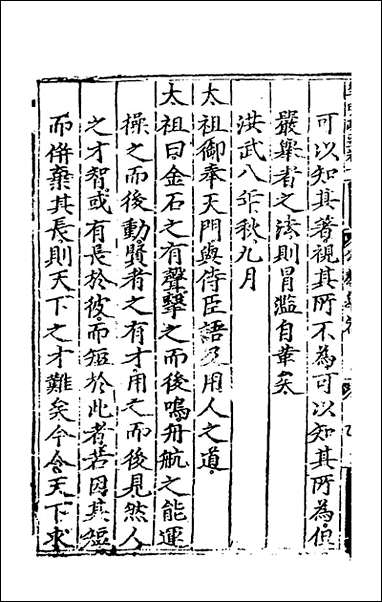 可以知其著視其所不為可以知其所為但
嚴舉者之法則冒濫自革矣
洪武八年秋九月
太祖御奉天門與侍臣語及用人之道
太祖曰金石之有聲擊之而後鳴舟航之能運
操之而後動賢者之有才用之而後見然人
之才智或有長於彼而短於此者若因其短
而併棄其長則天下之才難矣今令天下求